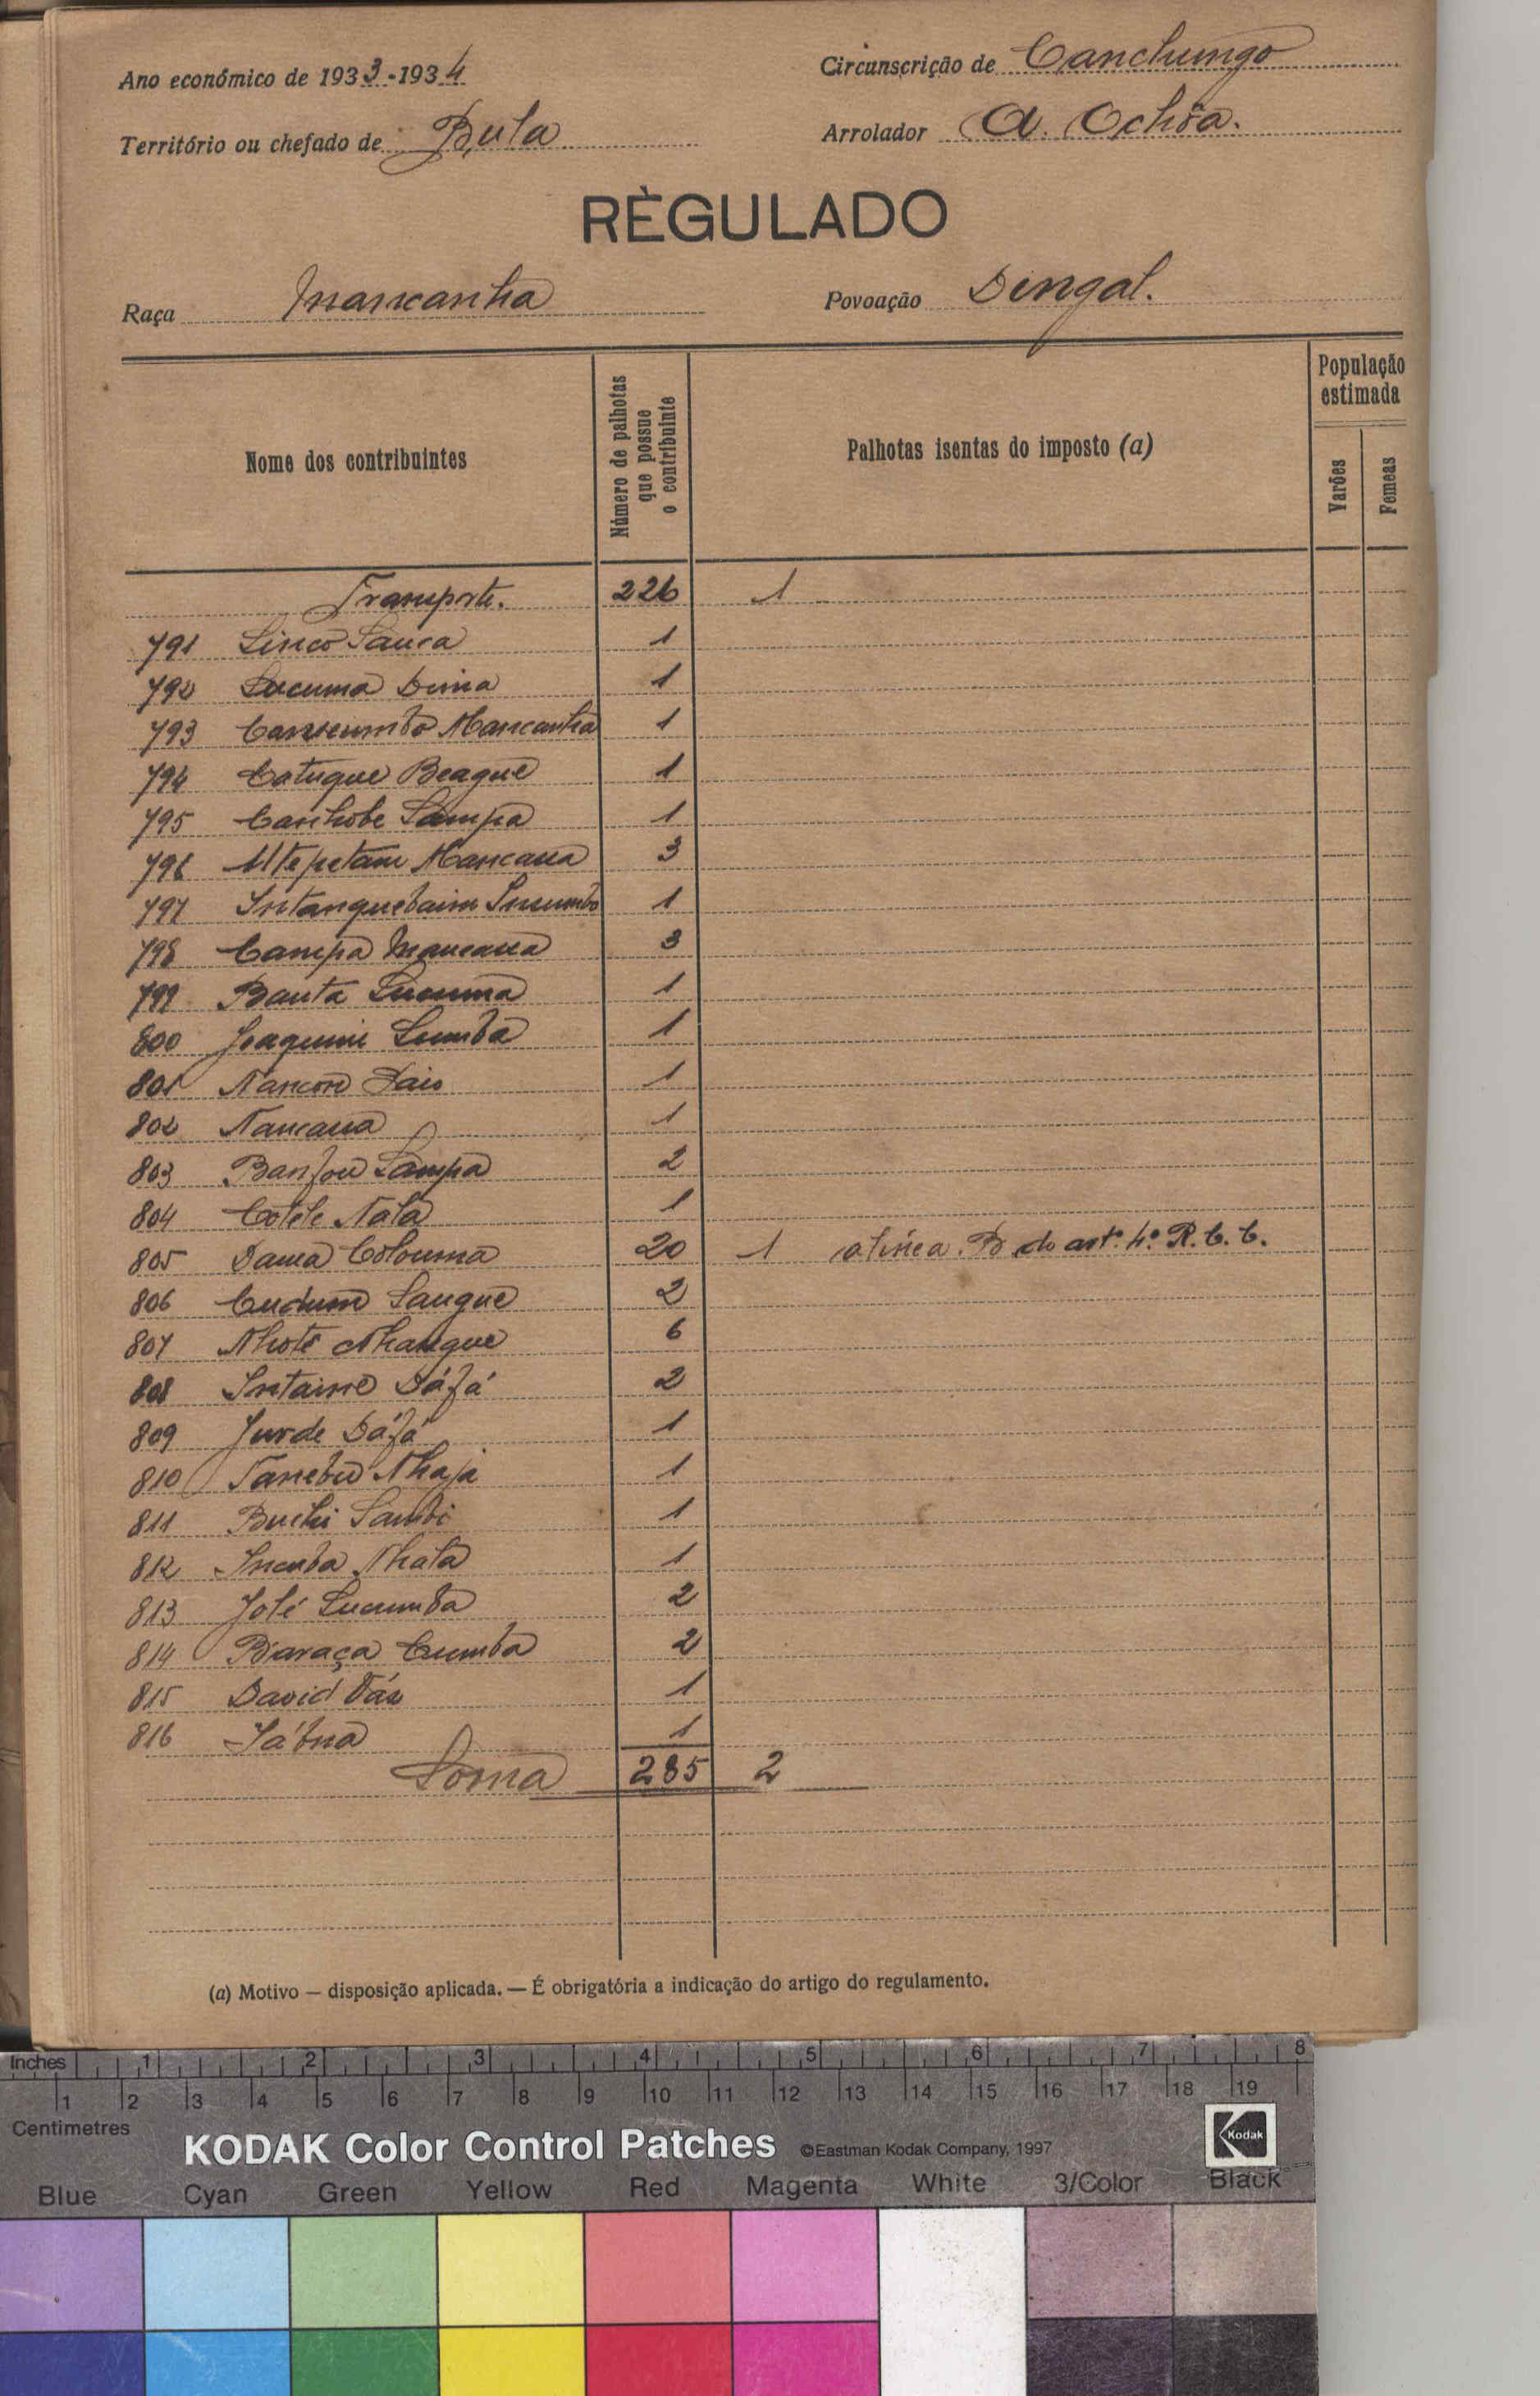 Ano económico de 1933-1934
Circunscrição de Canchungo
Território ou chefado de Bula
Arrolador A. Ochôa.
RÈGULADO
Raça Mancanha
Povoação Dingal.
Nome dos contribuintes
Número de palhotas que possue o contribuinte
Palhotas isentas do imposto (a)
População estimada
Varões
Femeas
Transporte. 226 1
791 Linco Sanca 1
792 Lucuma Dima 1
793 Mancanha 1
794 Catuque Beague 1
795 Canhobe Sampa 1
796 3
797 1
798 Campa Mancana 3
799 Banta Lucuma 1
800 Joaquim Lumba 1
801 Nancon Dais 1
802 Nancana 1
803 Banfou Sampa 2
804 Cotete Nata 1
805 Dama Colouma 20 1 alinea B do artº 4º R. C. C.
806 Cudum Sangue 2
807 Nhote Nhangue 6
808 Intaine Dáfá 2
809 Jurde Dáfá 1
810 Tanebu Nhaja 1
811 Buchi Sambi 1
812 Incuba Nhata 1
813 Jolé Lucumba 2
814 Baraça Cumba 2
815 David Váz 1
816 Játna 1
Soma 285 2
(a) Motivo — disposição aplicada. — É obrigatória a indicação do artigo do regulamento.
Inches 1 2 3 4 5 6 7 8
1 2 3 4 5 6 7 8 9 10 11 12 13 14 15 16 17 18 19
Centimetres
KODAK Color Control Patches ©Eastman Kodak Company, 1997 Kodak
Blue Cyan Green Yellow Red Magenta White 3/Color Black